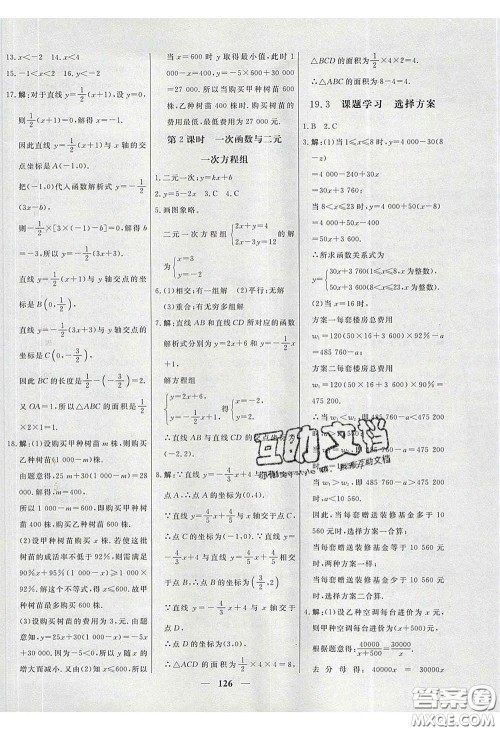 13. x<-2 14. x<4
15. -1<x<2 16. x<-2
17. 解:对于直线 y=1/2(x+1),设 y=0,
则 1/2(x+1)=0,解得 x=-1.
因此直线 y=1/2(x+1)与 x 轴的交点
坐标是 A(-1,0).
把(-1,0)代入函数解析式
y=-1/2(3x-b),
则-1/2×[3×(-1)-b]=0.
解得 b=-3.
直线 y=1/2(x+1)与 y 轴交点的坐
标是 B(0,1/2),
直线 y=-1/2(3x+3)与 y 轴交点的
坐标是 C(0,-3/2),
因此 BC 的长度是 1/2-(-3/2)=2.
又 OA=1,所以△ABC 的面积是 1/2
×2×1=1.
18. 解:(1)设购买甲种树苗 m 株,则购
买乙种树苗(1 000-m)株.
由题意得,25m+30(1 000-m)=28
000.解得 m=400.
(2)设购买甲种树苗 x 株,若要使这
批树苗的成活率不低于92%,则需满足
90%x+95%(1 000-x)≥1 000×
92%. 解这个不等式,得 x≤600. 故甲
种树苗最多购买 600 株.
(3)设购买树苗的费用为 y 元. 由题
意知,y=25x+30(1 000-x)=-5x+
30 000.因为-5<0,所以 y 随 x 的增
大而减小. 又因为 0<x≤600,所以
当 x=600 时 y 取得最小值,此时
y=-5×600+30 000=27 000
(元),所以,当购买甲种树苗 600
株,乙种树苗 400 株时,购买树苗的
费用最低,最低费用为 27 000 元.
第 2 课时 一次函数与二元
一次方程组
1. 二元一次;y=kx+b
2. y=5-2x 3. C 4. C
5. 画图象略.
二元一次方程组{2x+y=4 2x-3y=12的解
为{x=3 y=-2
6. (1)相交:有一组解 (2)平行:无解
(3)重合:有无穷多组解
7. 解:直线 AB 和直线 CD 所对应的函数
解析式分别为 y=2x+6 和 y=-1/2x+1.
解方程组
{y=2x+6, y=-1/2x+1,得{x=-2, y=2,
∴直线 AB 与直线 CD 的交点坐标为
(-2,2).
∵直线 y=-4/3x+4 与 x 轴交
∴点 A 的坐标为(3,0),
∵直线 y=-4/3x+4 与 y 轴交于点
C,∴点 C 的坐标为(0,4).
∵直线 y=-4/3x+4 与直线
y=4/3x+4/5相交
于点 B,∴点 B 的坐标为(3/2,2)
∵直线 y=4/5x+4/5与 y 轴交于点
D,
∴点 D 的坐标为
△ACD 的面积为 1/2×4×4=8.
△BCD 的面积为 1/2×4×2=4.
19.3 课题学习 选择方案
1. B 2. C
3. 解:(1)当 1≤x≤8 时,y=4 000-
30(8-x)
=4 000-240+30x
=30x+3 760;
当 8<x≤23 时,
y=4 000+50(x-8)
=4 000+50x-400
=50x+3 600.
∴所求函数关系式为
y={30x+3 760(1≤x≤8,x 为整数), 50x+3 600(8<x≤23,x 为整数).
(2)当 x=16 时,
方案一每套楼房总费用
w₁=120(50×16+3 600)×92%-a
=485 760-a;
方案二每套楼房总费用
w₂=120(50×16+3 600)×90%=
475 200.
∴当 w₁<w₂ 时,即 485 760-a<475
200 时,a>10 560;
当 w₁=w₂ 时,即 485 760-a=475
200 时,a=10 560;
当 w₁>w₂ 时,即 485 760-a>475
200 时,a<10 560.
因此,当每套赠送装修基金多于 10
560 元时,选择方案一合算;
当每套赠送装修基金等于 10 560
元时,两种方案一样;
当每套赠送装修基金少于 10 560
元时,选择方案二合算.
4. 解:(1)设乙种空调每台进价为 x 元,
则甲种空调每台进价为(x+500)元.
由题意得,40000/(x+500)=30000/x,
去分母得:40000x=30000(x
126
互助文档